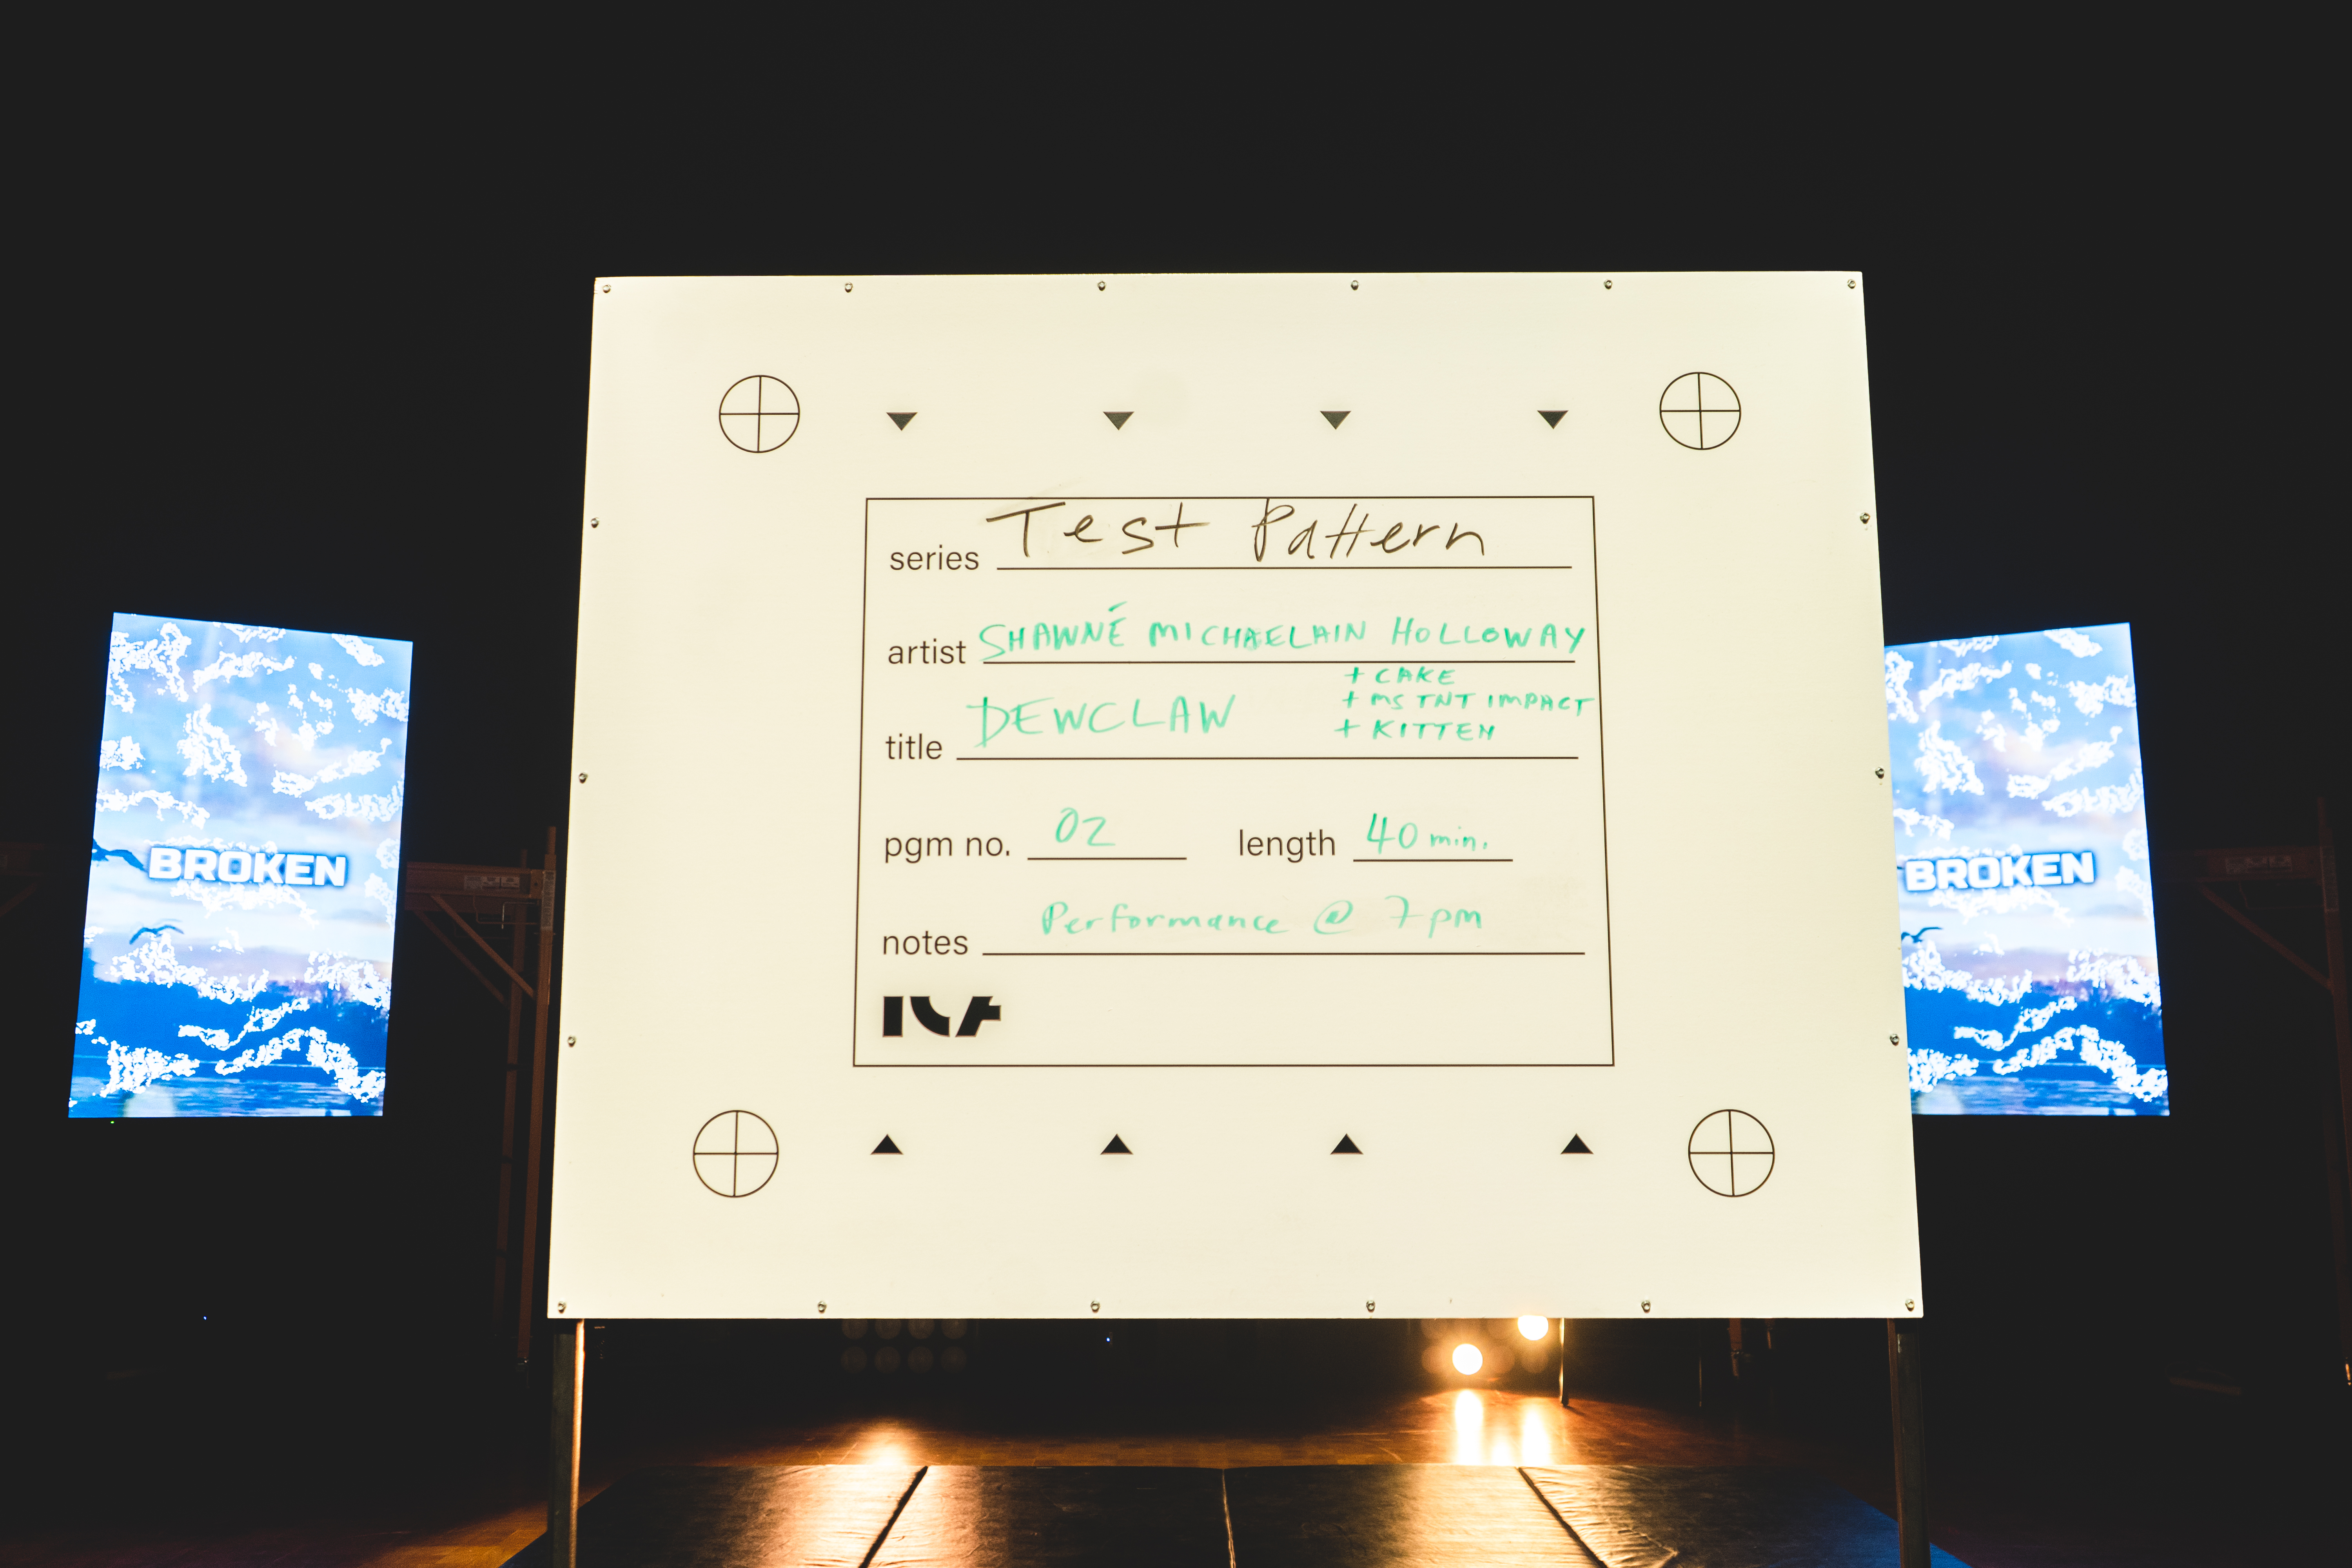 series Test Pattern
artist SHAWNÉ MICHAELAIN HOLLOWAY
+ CAKE
+ MS TNT IMPACT
+ KITTEN
title DEWCLAW
pgm no. 02 length 40 min.
notes Performance @ 7pm
ICA
BROKEN
BROKEN